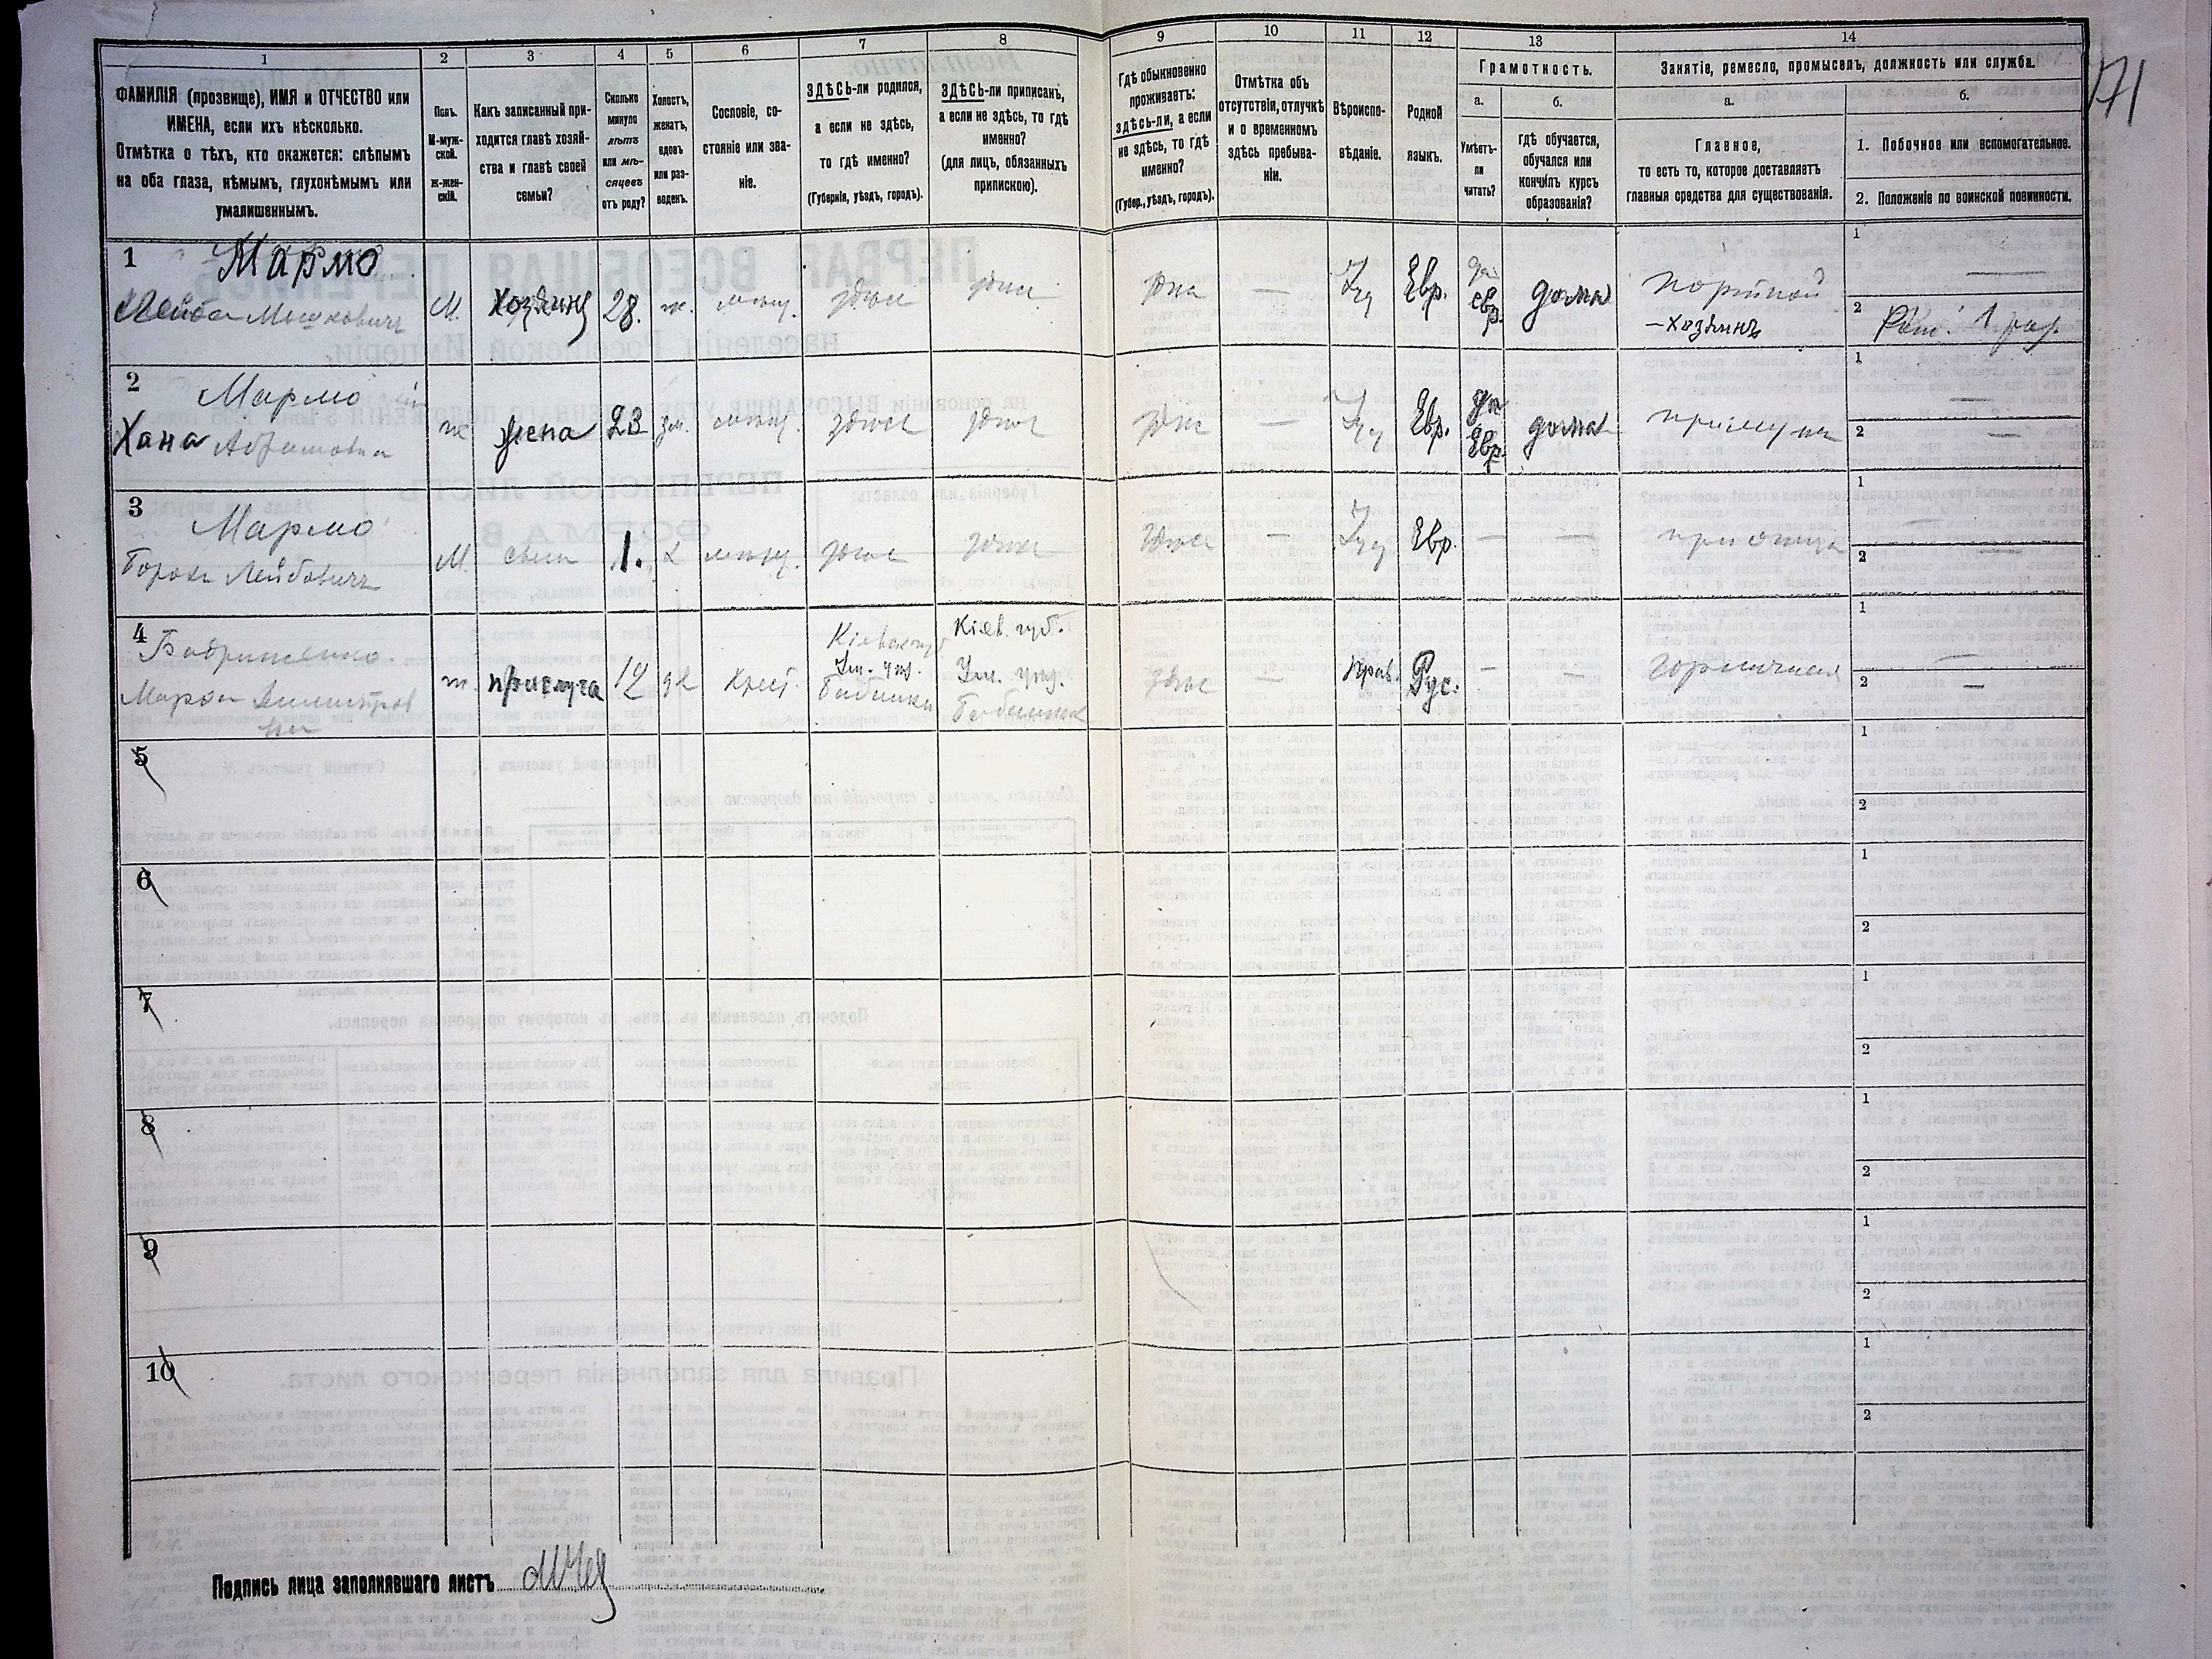 1 2 3 4 5 6 7 8 9 10 11 12 13 14
ФАМИЛІЯ (прозвище), ИМЯ и ОТЧЕСТВО или
ИМЕНА, если ихъ нѣсколько.
Отмѣтка о тѣхъ, кто окажется: слѣпымъ
на оба глаза, нѣмымъ, глухонѣмымъ или
умалишеннымъ.
Полъ.
М-муж-
ской.
Ж-жен-
скій.
Какъ записанный при-
ходится главѣ хозяй-
ства и главѣ своей
семьи?
Сколько
минуло
лѣтъ
или мѣ-
сяцевъ
отъ роду?
Холостъ,
женатъ,
вдовъ
или раз-
веденъ.
Сословіе, со-
стояніе или зва-
ніе.
ЗДѢСЬ-ли родился,
а если не здѣсь,
то гдѣ именно?
(Губернія, уѣздъ, городъ).
ЗДѢСЬ-ли приписанъ,
а если не здѣсь, то гдѣ
именно?
(для лицъ, обязанныхъ
припискою).
Гдѣ обыкновенно
проживаетъ:
здѣсь-ли, а если
не здѣсь, то гдѣ
именно?
(Губер., уѣздъ, городъ).
Отмѣтка объ
отсутствіи, отлучкѣ
и о временномъ
здѣсь пребыва-
ніи.
Вѣроиспо-
вѣданіе.
Родной
языкъ.
Грамотность.
а.
Умѣетъ-
ли
читать?
б.
гдѣ обучается,
обучался или
кончилъ курсъ
образованія?
Занятіе, ремесло, промыселъ, должность или служба.
а.
Главное,
то есть то, которое доставляетъ
главныя средства для существованія.
б.
1. Побочное или вспомогательное.
2. Положеніе по воинской повинности.
171
1 Мармо
Лейба Мошковичъ М. Хозяинъ 28. ж. мѣщ. здѣсь здѣсь здѣсь — Іуд Евр. да евр. дома Портной
—хозяинъ
1 —
2 1 раз
2 Мармо
Хана Абрамовна ж жена 23 зм. мѣщ. здѣсь здѣсь здѣсь — Іуд Евр. да Евр. дома при мужѣ
1 —
2 —
3 Мармо
Борохъ Лейбовичъ М. сынъ 1. х мѣщ. здѣсь здѣсь здѣсь — Іуд Евр. — — при отцѣ
1 —
2 —
4
Марѳа ж. прислуга 12 дѣ Крест. Кіевск губ
Ум. уѣз.
Кіев. губ.
Ум. уѣз.
здѣсь — Прав. Рус. — — Горничная
1 —
2 —
5
1
2
6
1
2
7
1
2
8
1
2
9
1
2
10
1
2
Подпись лица заполнявшаго листъ